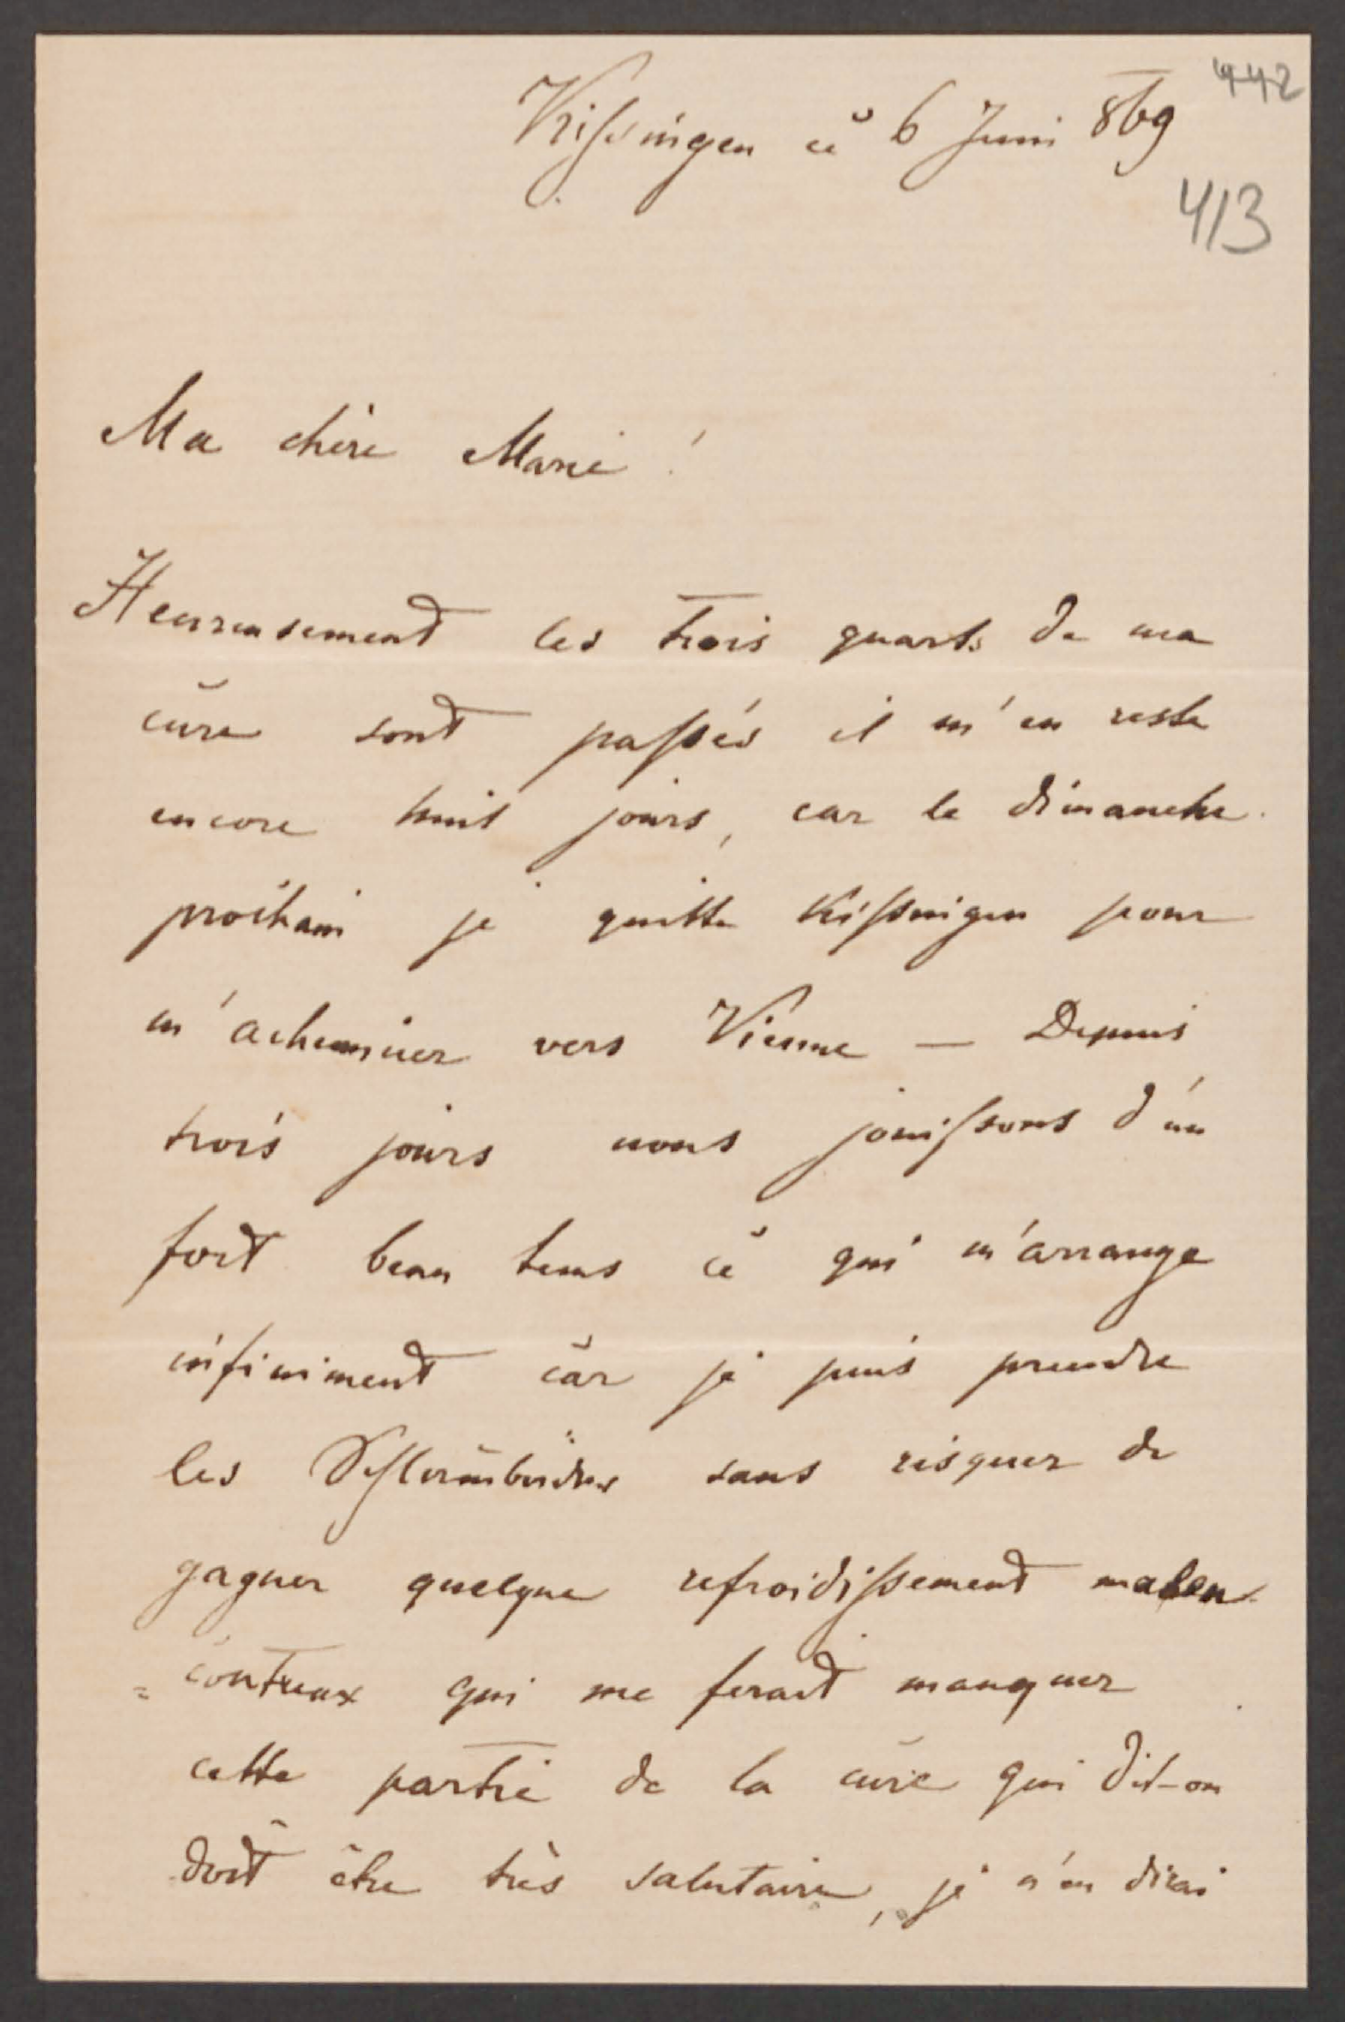 442
Kissingen ce 6 Juni 869
413
Ma chère Marie !
Heureusement les trois quarts de ma
cure sont passés il m'en reste
encore huit jours, car le dimanche
prochain je quitte Kissingen pour
m'acheminer vers Vienne — Depuis
trois jours nous jouissons d'un
fort beau tems ce qui m'arrange
infiniment car je puis prendre
les sans risquer de
gagner quelque refroidissement malen
=contreux qui me ferait manquer
cette partie de la cure qui dit-on
doit être très salutaire, je n'en dirai